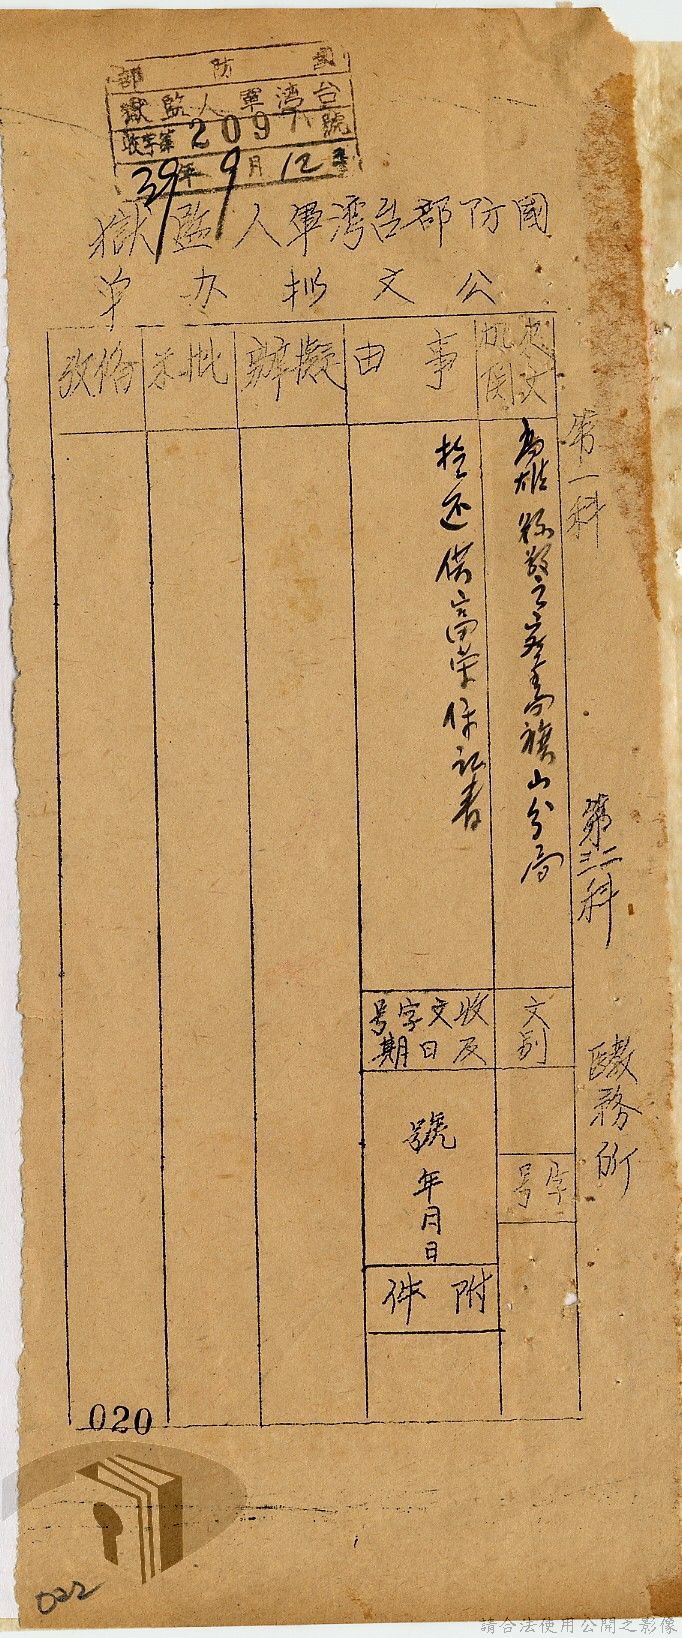 國防部
台灣軍人監獄
收字第209八號
39年9月12日
國防部台湾軍人监獄
公文拟办单
来文机関
事由
擬辦
批示
備攷
高雄縣政府警察局旗山分局
检还供高荣保証書
文別
字号
收文字号及日期
號
年月日
附件
第一科
第二三科
醫務所
020
022
請合法使用公開之影像